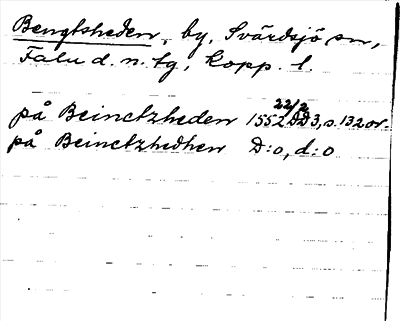 Bengtsheden, by, Svärdsjö sn,
Falu d. n. tg, Kopp. l.
22/2
på Beinctzheden 1552 DD3, s. 132 or.
på Beinctzhedhen D:o, d:o